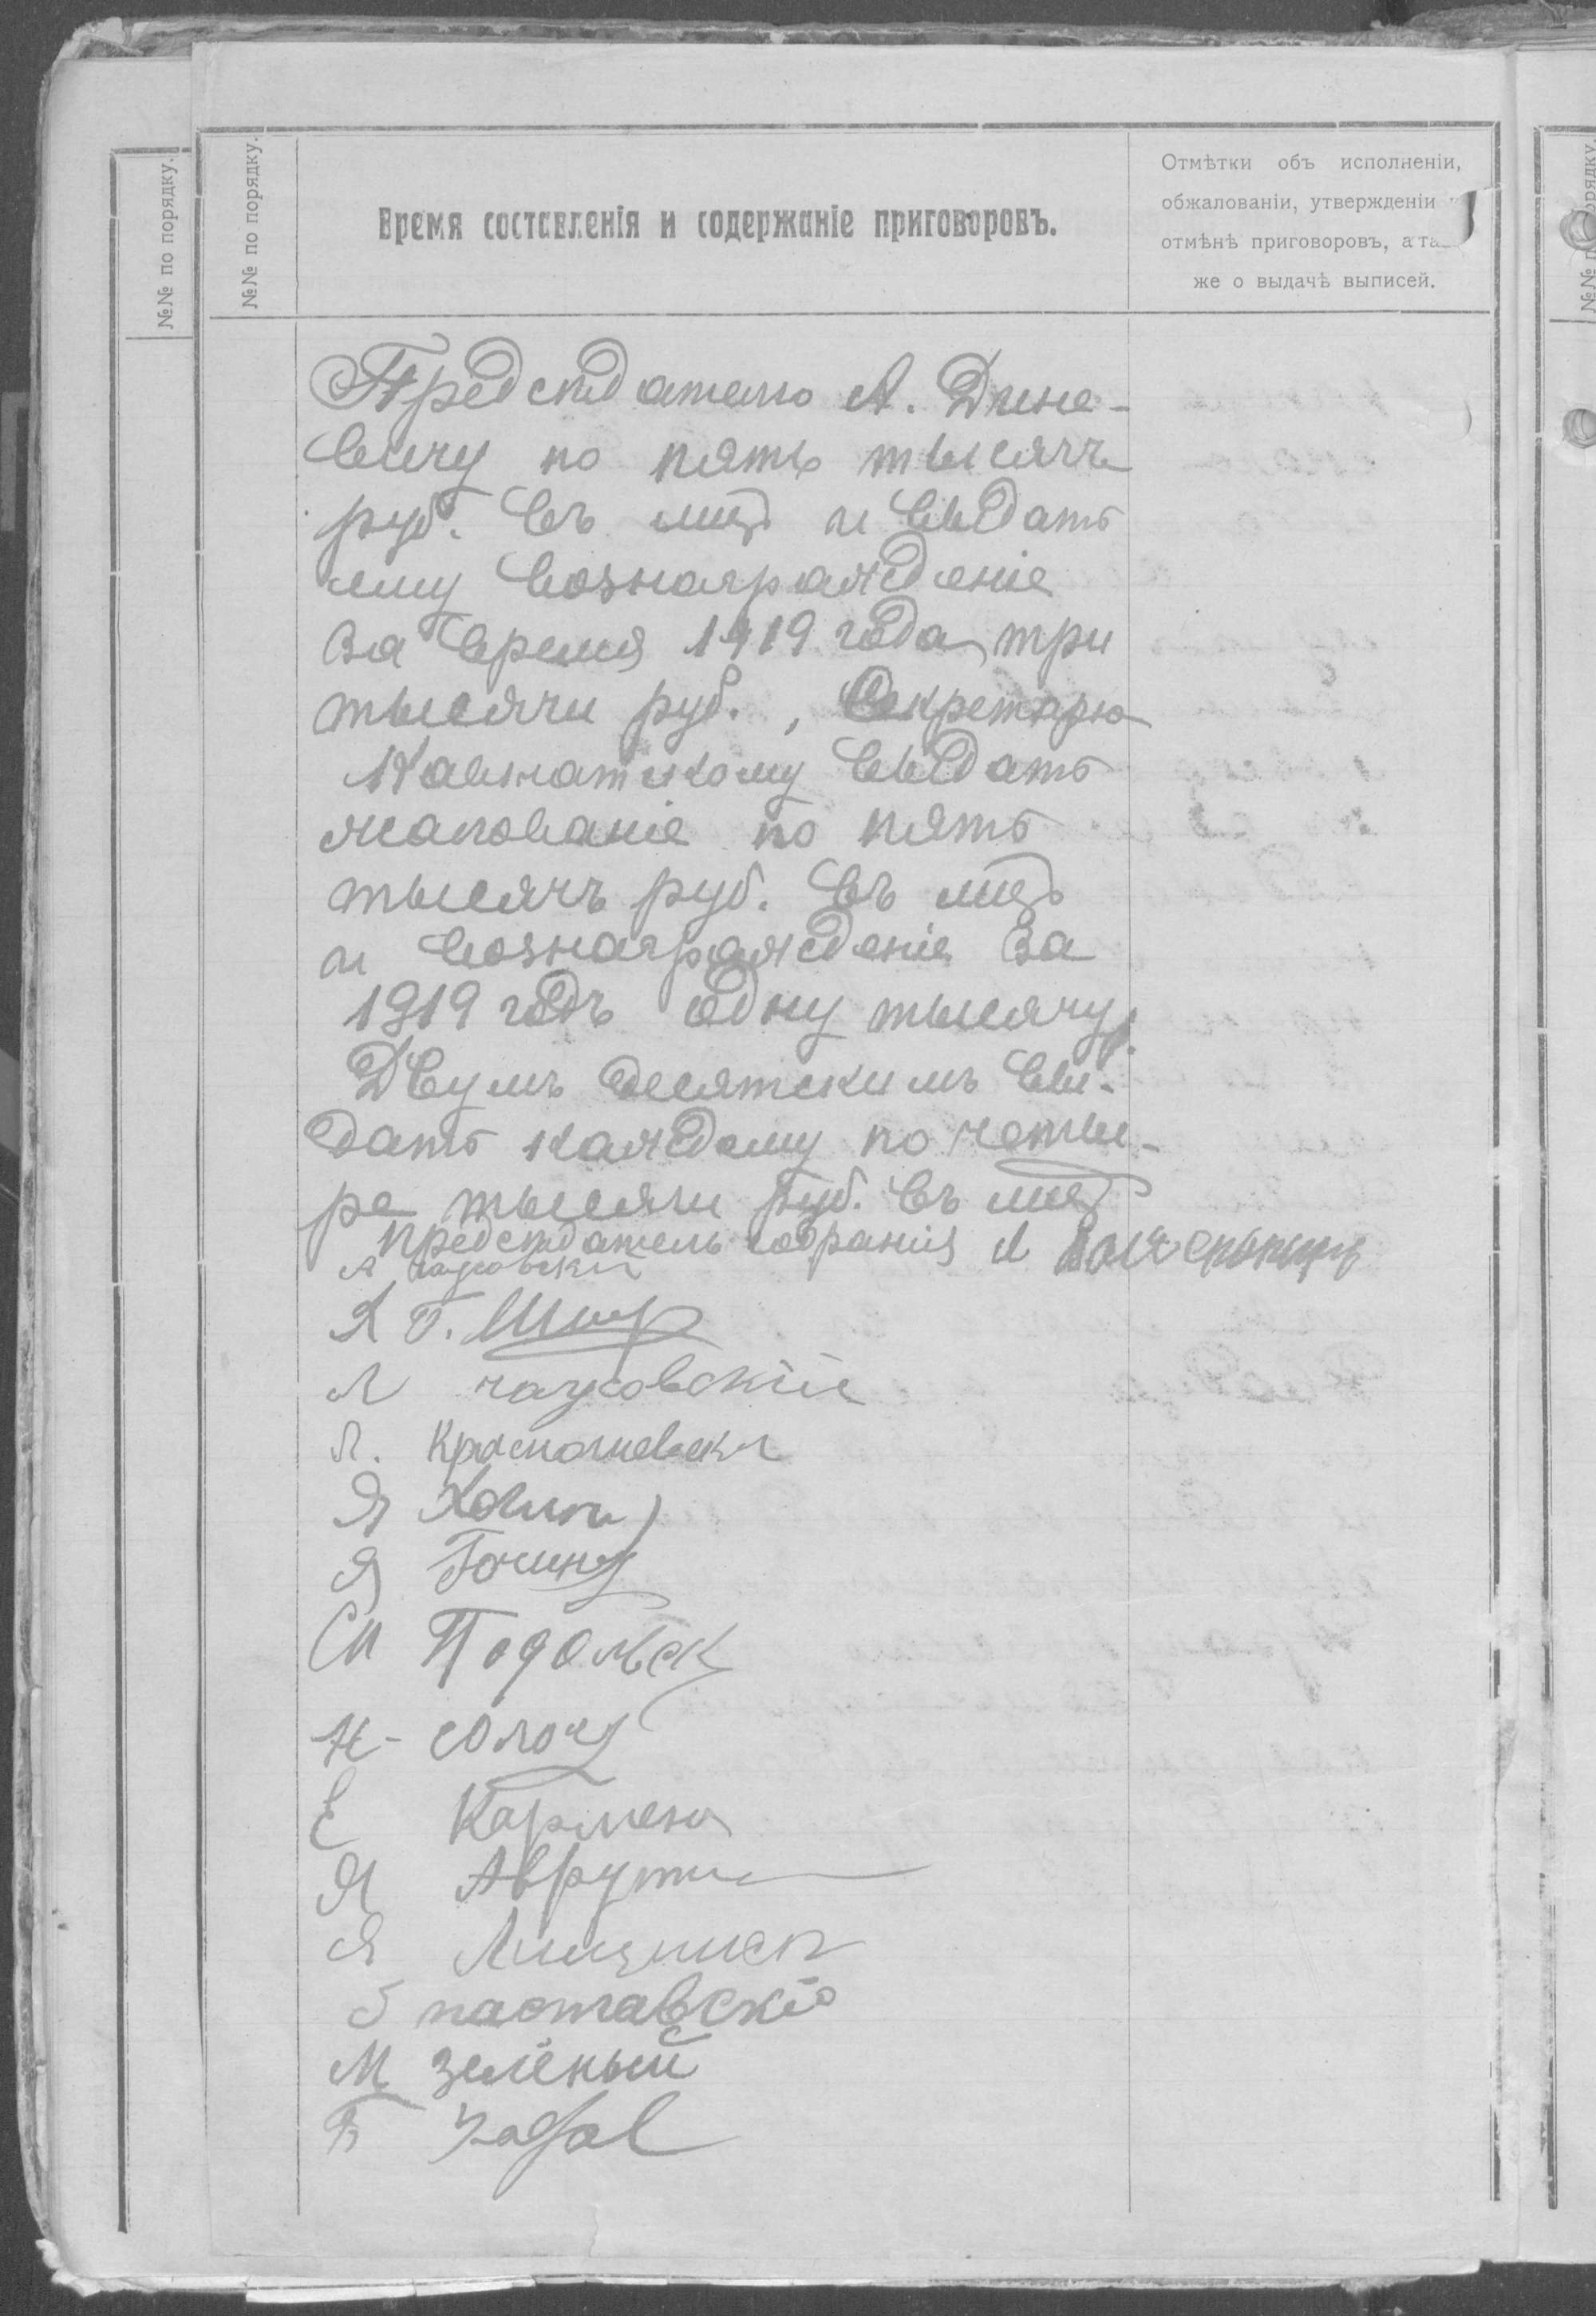 №№ по порядку.
№№ по порядку.
Время составленія и содержаніе приговоровъ.
Отмѣтки объ исполненіи,
обжалованіи, утвержденіи
отмѣнѣ приговоровъ, а та
же о выдачѣ выписей.
Предсѣдателю А. Дине-
вичу по пять тысячъ
руб. въ мѣс и выдать
ему вознагражденіе
за время 1919 года три
тысячи руб., Секретарю
выдать
жалованіе по пять
тысячъ руб. въ мѣс
и вознагражденіе за
1919 годъ одну тысячу.
Двумъ десятскимъ вы-
дать каждому по четы-
ре тысячи руб. въ мѣс
Предсѣдатель собранія
Я Г.
Л чауовскій
Л.
Я Хоминъ
Я
Подольск
Н-
Е Кармена
Я Аврутин
Я
паставскій
М зеленый
Б